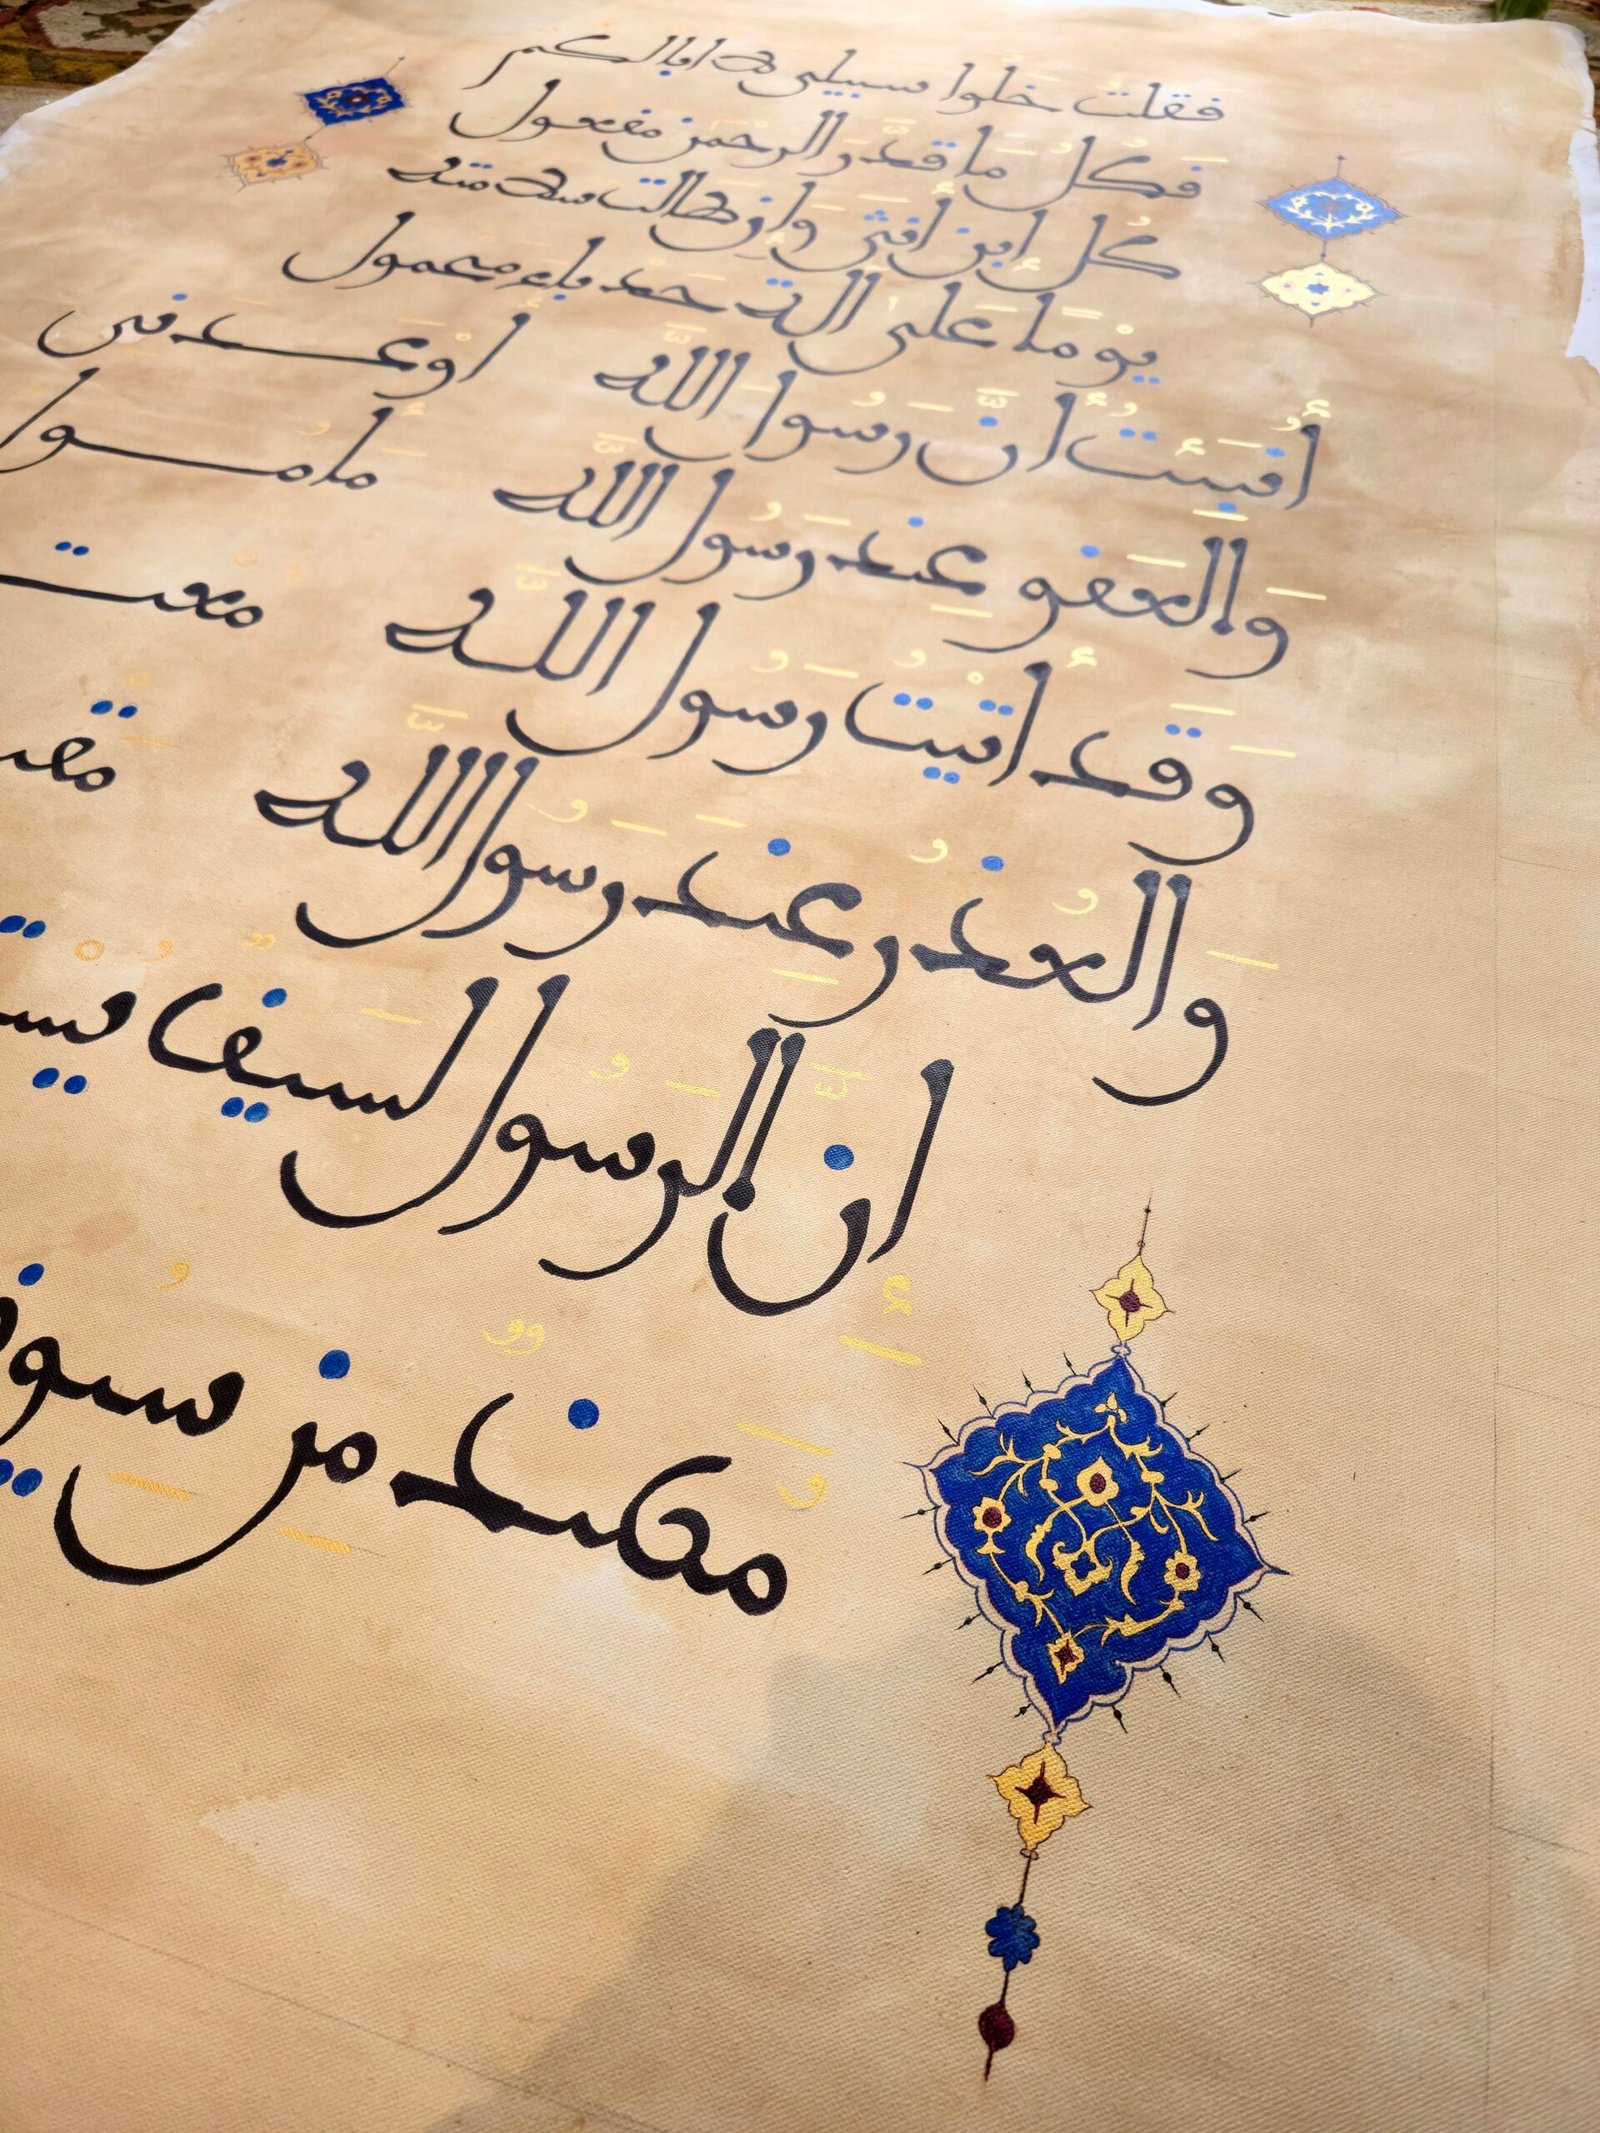 فَقُلتُ خَلوا سَبيلي لا ابا لكم
فَكُلُّ مَا قَدَّرَ الرحمَن مفعول
كُل إبن أُنثى وَإن طالت سلامته
يَوْمًا عَلى آلة حَدباء محمول
أُنبِئتُ أنَّ رَسُول اللَّه أوْعَدني
وَالعَفو عِندَ رَسُول اللَّه مأمول
وَقَد أتَيْتُ رَسُول اللَّه
وَالعُذرُ عِندَ رَسُول اللَّه
إنَّ الرَسُول لَسيفٌ
مُهَنَّدٌ مِن سُيوفِ